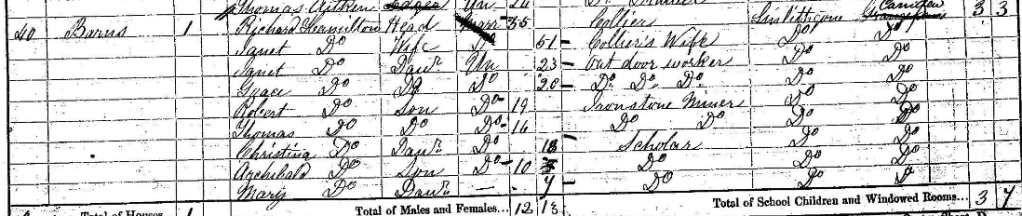 Thomas Aitken Lodger Un 26
40 Barns 1 Richard Hamilton Head Marr 55 Collier Linlithgow 3 3
Janet Do Wife Do 51 Collier's Wife Do Do
Janet Do Daur Un 23 Out door worker Do Do
Grace Do Do Do 20 Do Do Do Do Do
Robert Do Son Do 19 Ironstone Miner Do Do
Thomas Do Do Do 16 Do Do Do Do
Christina Do Daur Do 13 Scholar Do Do
Archibald Do Son Do 10 Do Do Do
Mary Do Daur — 7 Do Do Do
Total of Houses 1 Total of Males and Females... 12 13 Total of School Children and Windowed Rooms... 3 7